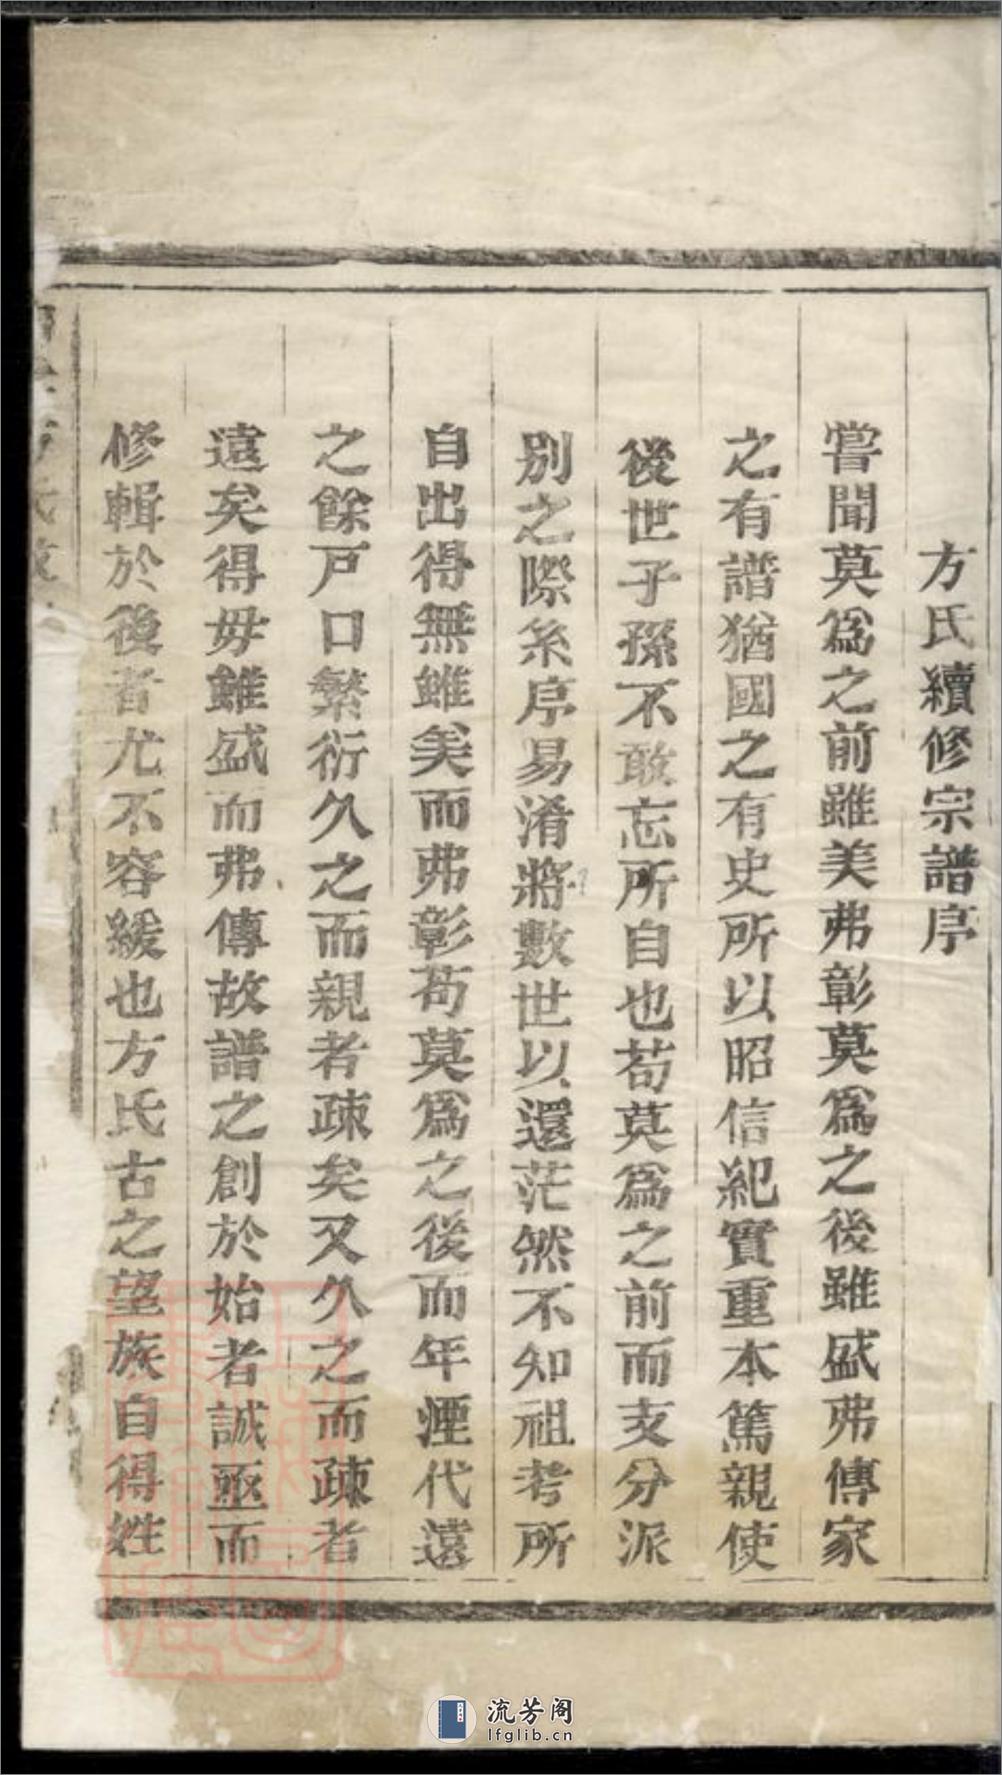 方氏續修宗譜序
嘗聞莫爲之前雖美弗彰莫爲之後雖盛弗傳家
之有譜猶國之有史所以昭信紀實重本篤親使
後世子孫不敢忘所自也苟莫爲之前而支分派
别之際系序易淆將數世以還茫然不知祖考所
自出得無雖美而弗彰苟莫爲之後而年湮代遠
之餘戸口繁衍久之而親者疎矣又久之而疎者
遠矣得毋雖盛而弗傳故譜之創於始者誠亟而
修輯於後者尤不容緩也方氏古之望族自得姓
流芳阁
lfglib.cn